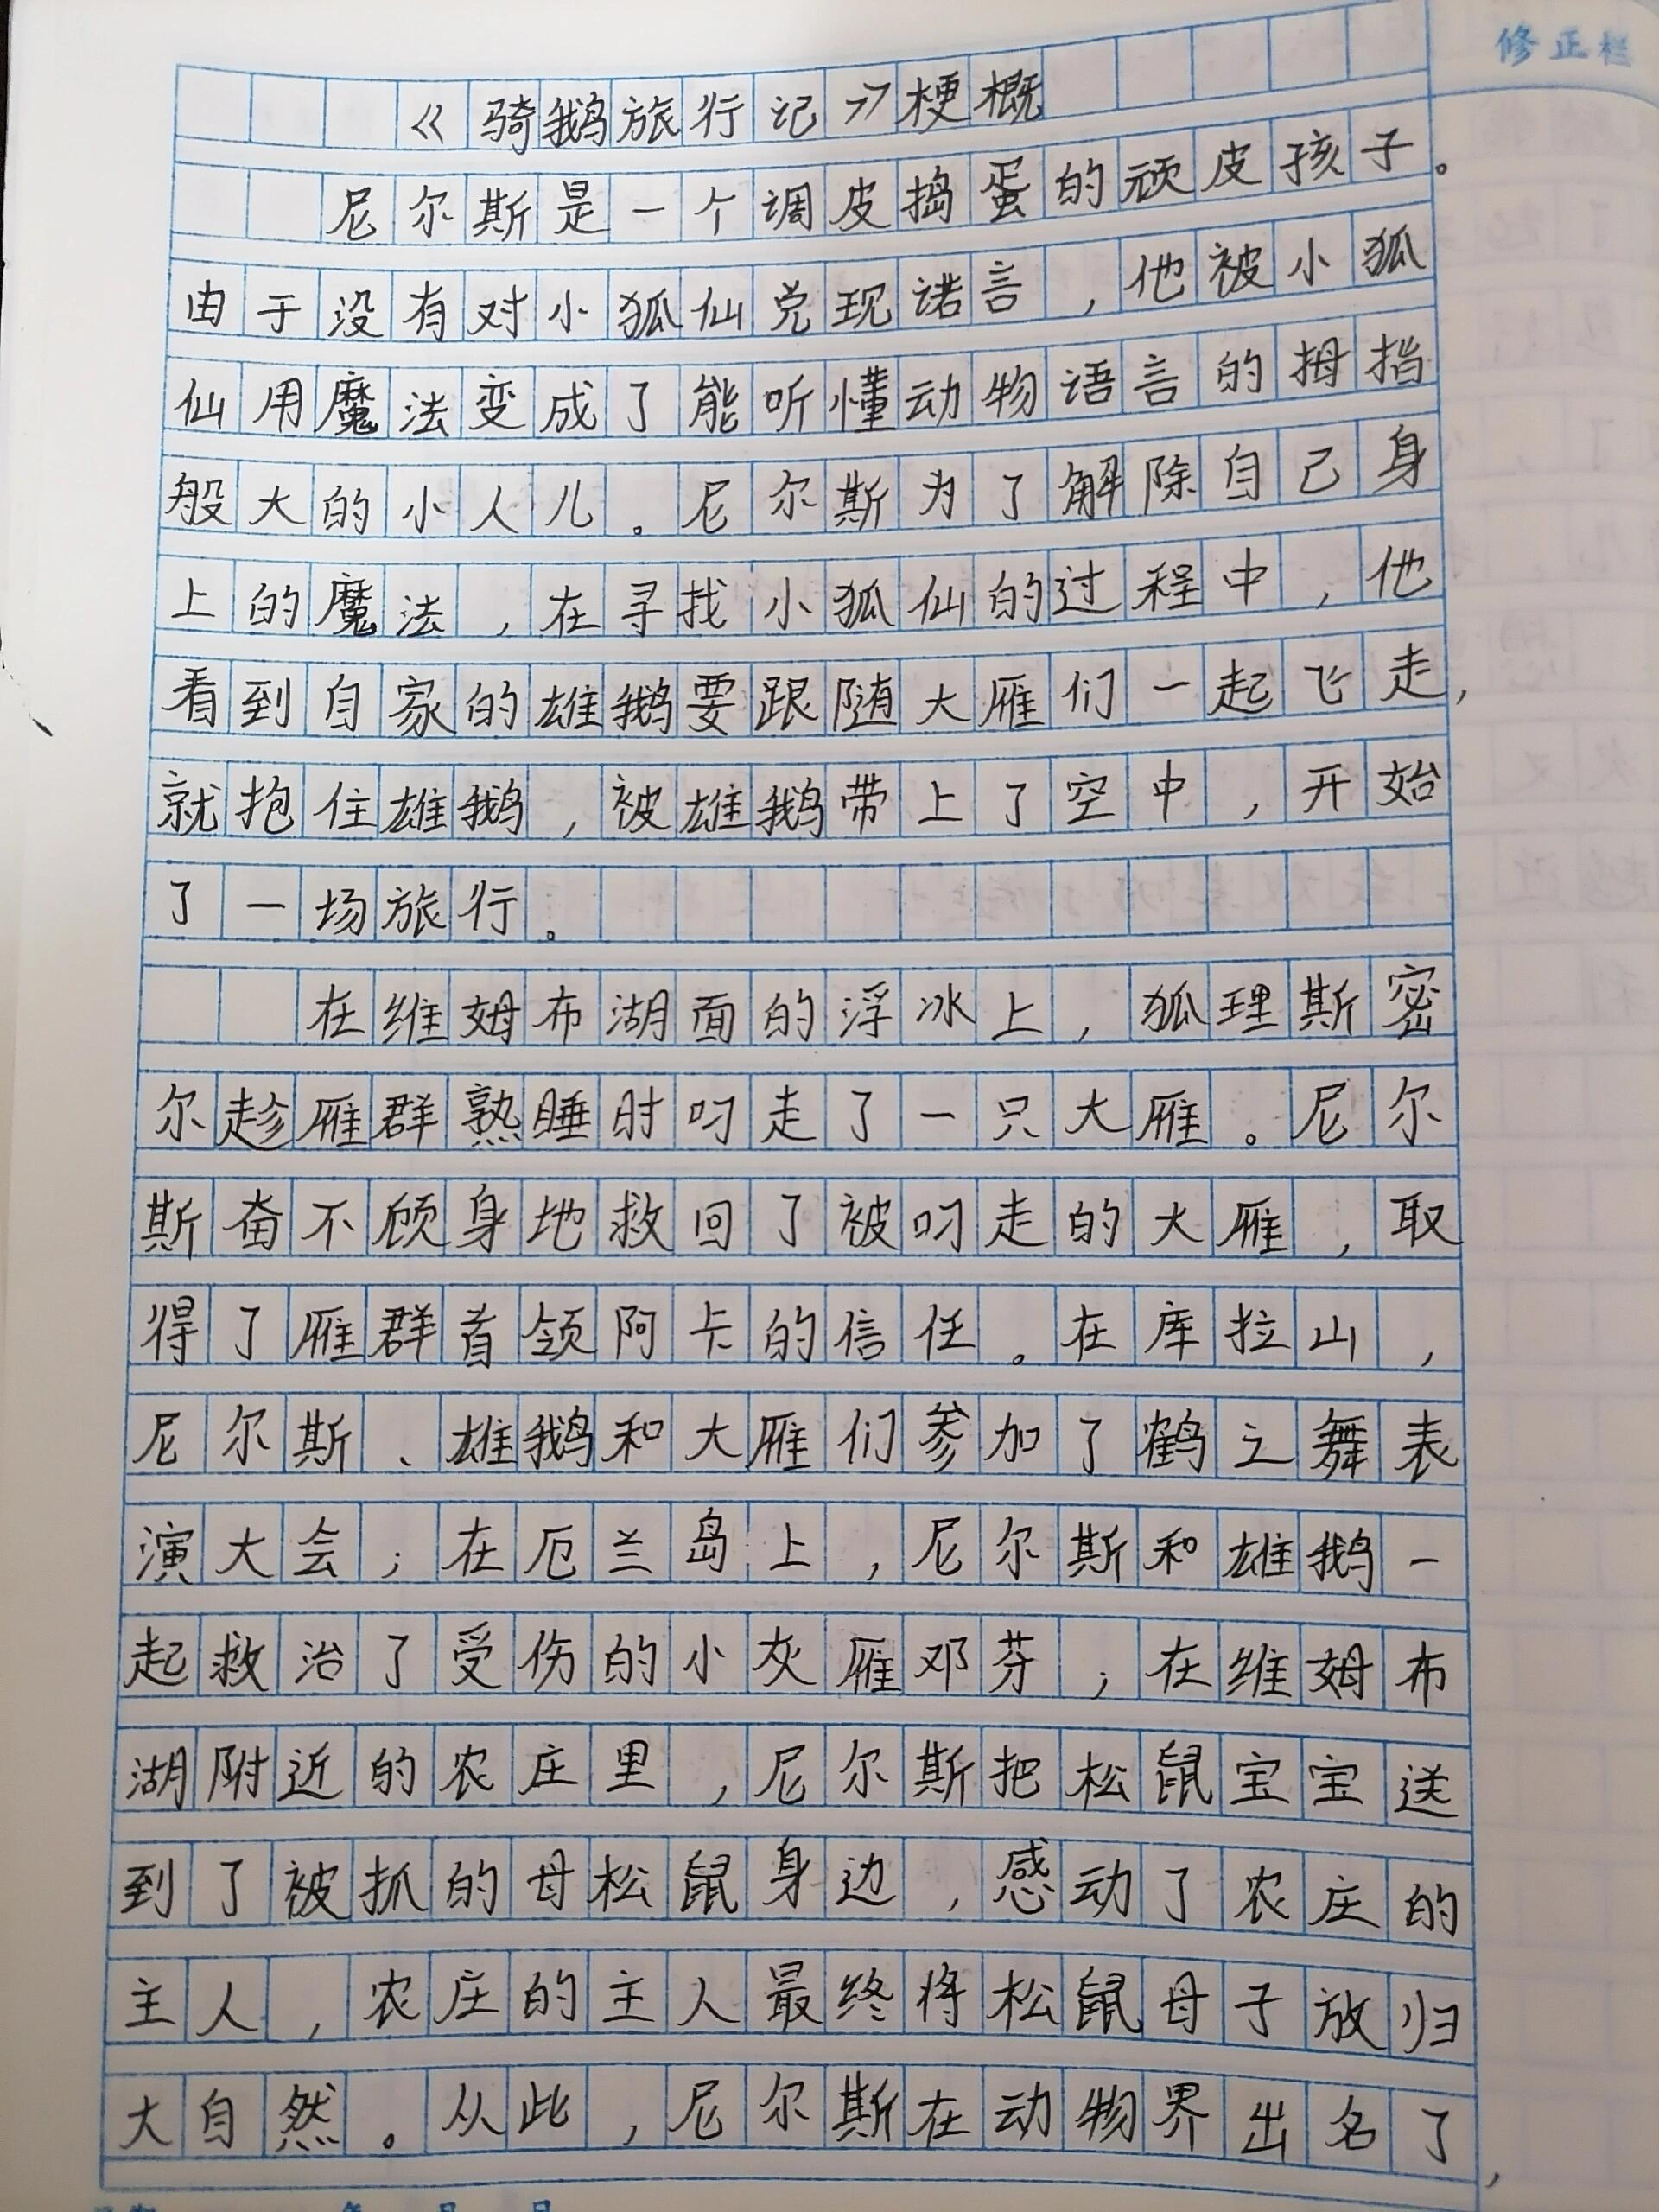 修正栏
《骑鹅旅行记》梗概
尼尔斯是一个调皮捣蛋的顽皮孩子。
由于没有对小狐仙兑现诺言，他被小狐
仙用魔法变成了能听懂动物语言的拇指
般大的小人儿。尼尔斯为了解除自己身
上的魔法，在寻找小狐仙的过程中，他
看到自家的雄鹅要跟随大雁们一起飞走，
就抱住雄鹅，被雄鹅带上了空中，开始
了一场旅行。
在维姆布湖面的浮冰上，狐理斯密
尔趁雁群熟睡时叼走了一只大雁。尼尔
斯奋不顾身地救回了被叼走的大雁，取
得了雁群首领阿卡的信任。在库拉山，
尼尔斯、雄鹅和大雁们参加了鹤之舞表
演大会；在厄兰岛上，尼尔斯和雄鹅一
起救治了受伤的小灰雁邓芬；在维姆布
湖附近的农庄里，尼尔斯把松鼠宝宝送
到了被抓的母松鼠身边，感动了农庄的
主人，农庄的主人最终将松鼠母子放归
大自然。从此，尼尔斯在动物界出名了，